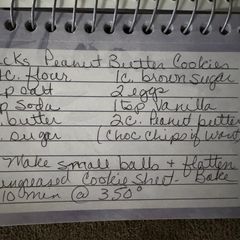 cks Peanut Butter Cookies
c. flour 1c. brown sugar
p salt 2 eggs
p soda 1 tsp Vanilla
. butter 2c. Peanut butter
. sugar (Choc chips if want)
Make small balls + flatten
ungreased Cookie Sheet - Bake
10 min @ 350°